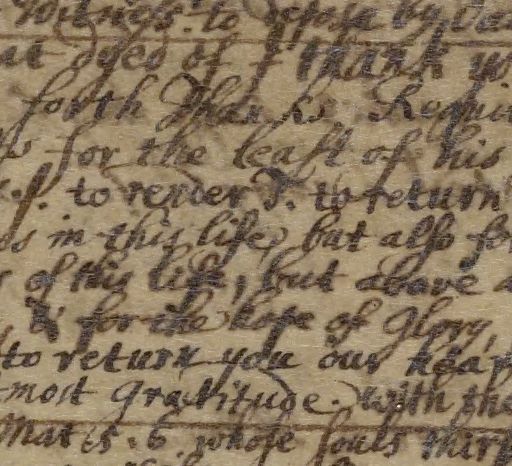 Witness. to depose by
at dyed of I thank
forth Thanks. Requi
for the least of his
to render T. to return
in this life, but also fo
of this life, but above a
for the hope of Glory,
to return you our hear
most Gratitude. With the
Mat 5. 6 whose souls thir